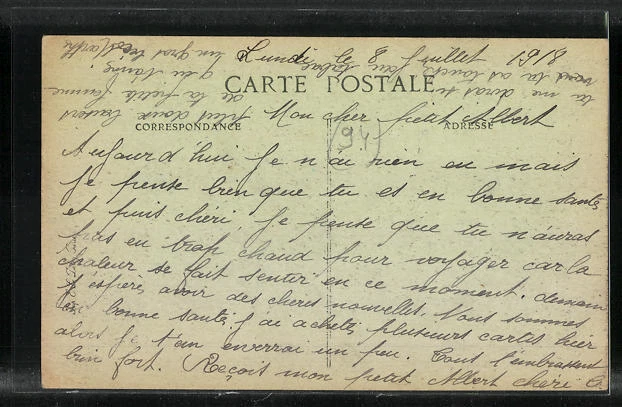 Lundi le 8 Juillet 1918
CARTE POSTALE
CORRESPONDANCE
ADRESSE
Mon cher petit Albert
(94)
Aujourd'hui Je n'ai rien eu mais
Je pense bien que tu es en bonne santé
et puis chéri Je pense que tu n'auras
pas eu trop chaud pour voyager car la
chaleur se fait sentir en ce moment. demain
J'éspère avoir des cheres nouvelles. Nous sommes
en bonne santé. J'ai acheté plusieurs cartes hier
alors Je t'en enverrai un peu. Tous t'embrassent
bien fort. Reçois mon petit Albert chéri
tu me diras
de la petite femme
un gros